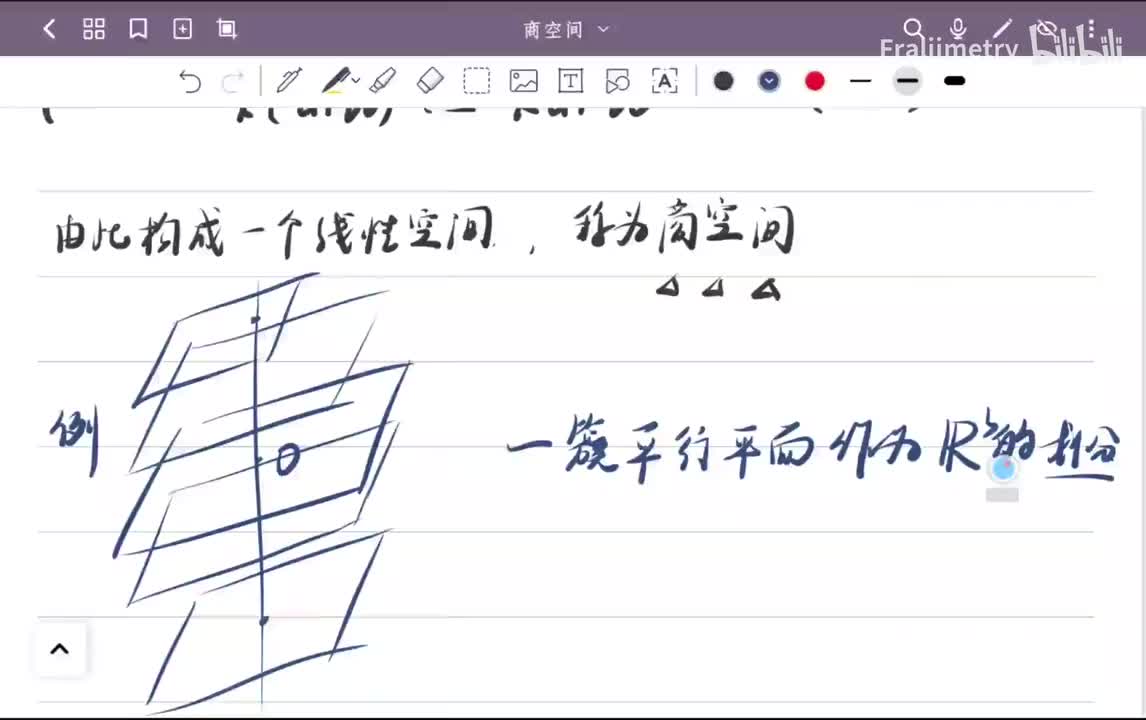 商空间
Fraliimetry bilibili
由此构成一个线性空间，称为商空间
例
O
一簇平行平面作为 R³的划分